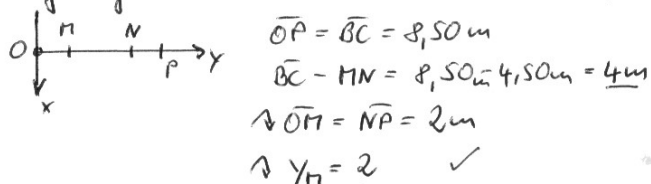 M N
O P Y
X
OP = BC = 8,50m
BC - MN = 8,50m - 4,50m = 4m
OM = NP = 2m
Y_M = 2 ✓